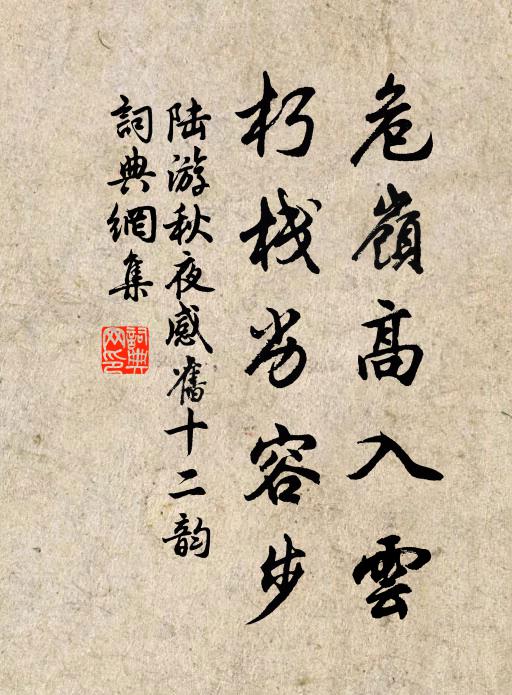 危嶺高入雲
朽栈劣容步
陆游秋夜感舊十二韵
詞典網集
詞典網印